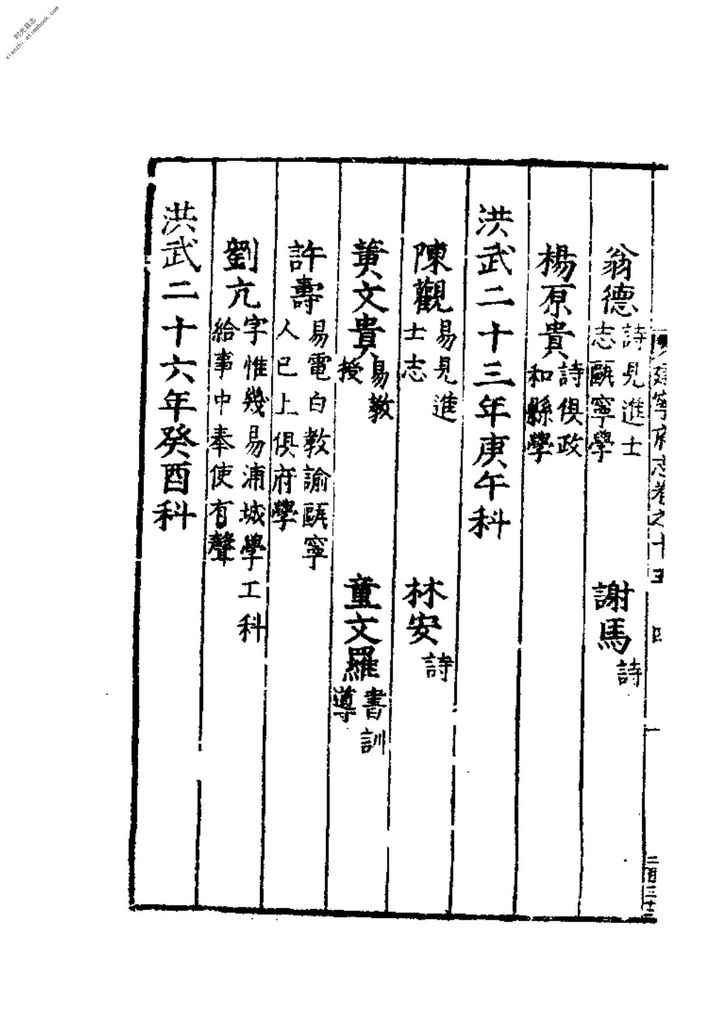 时光日志
xianzhi.atimebook.com
建寧府志卷之十五 四
翁德 詩見進士
志甌寧學
謝馬 詩
楊原貴 詩俱政
和縣學
洪武二十三年庚午科
陳觀 易見進
士志
林安 詩
黃文貴 易教
授
童文羅 書訓
導
許壽 易電白教諭甌寧
人已上俱府學
劉亢 字惟幾易浦城學工科
給事中奉使有聲
洪武二十六年癸酉科